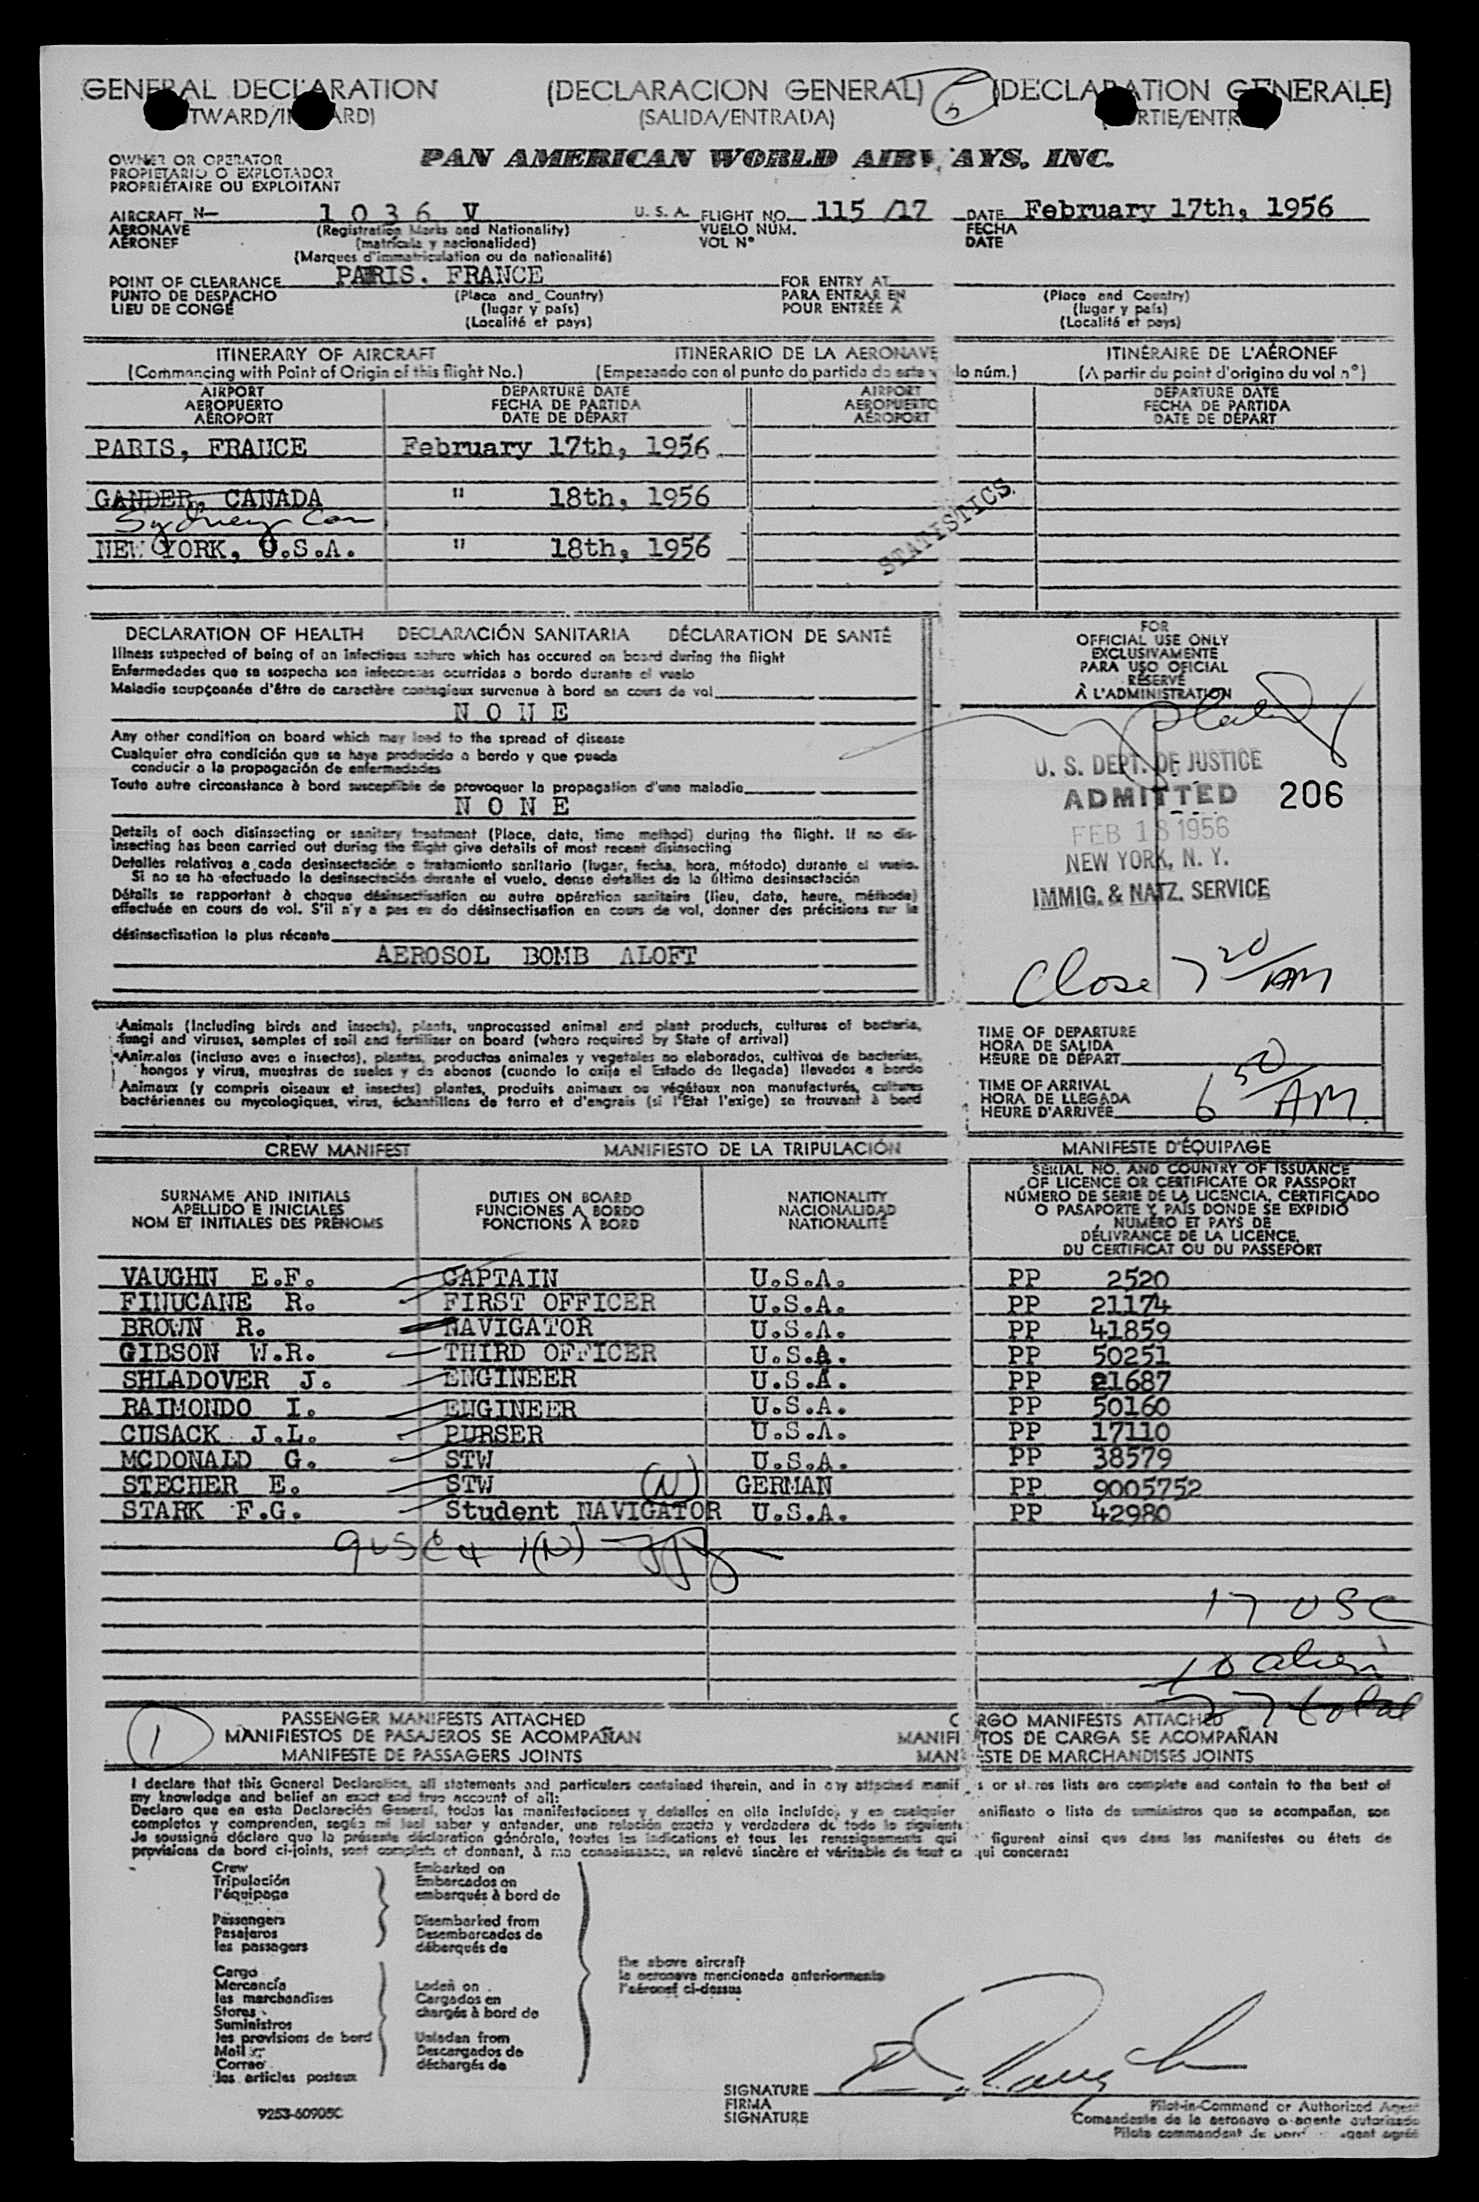 GENERAL DECLARATION (DECLARACION GENERAL) (DECLARATION GENERALE)
(SALIDA/ENTRADA)
OWNER OR OPERATOR
PROPIETARIO O EXPLOTADOR
PROPRIÉTAIRE OU EXPLOITANT
PAN AMERICAN WORLD AIRWAYS, INC.
AIRCRAFT N— 1036 V U.S.A. FLIGHT NO. 115 /17 DATE February 17th, 1956
AERONAVE (Registration Marks and Nationality) VUELO NUM. FECHA
AÉRONEF (matricula y nacionalidad) VOL N° DATE
(Marques d'immatriculation ou de nationalité)
POINT OF CLEARANCE PARIS. FRANCE FOR ENTRY AT
PUNTO DE DESPACHO (Place and Country) PARA ENTRAR EN (Place and Country)
LIEU DE CONGÉ (lugar y país) POUR ENTRÉE À (lugar y país)
(Localité et pays) (Localité et pays)
ITINERARY OF AIRCRAFT ITINERARIO DE LA AERONAVE ITINÉRAIRE DE L'AÉRONEF
(Commencing with Point of Origin of this flight No.) (Empezando con el punto de partida de este vuelo núm.) (A partir du point d'origine du vol n°)
AIRPORT DEPARTURE DATE AIRPORT DEPARTURE DATE
AEROPUERTO FECHA DE PARTIDA AEROPUERTO FECHA DE PARTIDA
AÉROPORT DATE DE DÉPART AÉROPORT DATE DE DÉPART
PARIS, FRANCE February 17th, 1956
GANDER, CANADA " 18th, 1956
Sydney Can
NEW YORK, U.S.A. " 18th, 1956
STATISTICS
DECLARATION OF HEALTH DECLARACIÓN SANITARIA DÉCLARATION DE SANTÉ
FOR
OFFICIAL USE ONLY
EXCLUSIVAMENTE
PARA USO OFICIAL
RÉSERVÉ
À L'ADMINISTRATION
Illness suspected of being of an infectious nature which has occured on board during the flight
Enfermedades que se sospecha son infecciosas ocurridas a bordo durante el vuelo
Maladie soupçonnée d'être de caractère contagieux survenue à bord en cours de vol
NONE
Any other condition on board which may lead to the spread of disease
Cualquier otra condición que se haya producido a bordo y que pueda
conducir a la propagación de enfermedades
Toute autre circonstance à bord susceptible de provoquer la propagation d'une maladie
NONE
U. S. DEPT. OF JUSTICE
ADMITTED 206
FEB 18 1956
NEW YORK, N. Y.
IMMIG. & NATZ. SERVICE
Details of each disinsecting or sanitary treatment (Place, date, time method) during the flight. If no dis-
insecting has been carried out during the flight give details of most recent disinsecting
Detalles relativos a cada desinsectación o tratamiento sanitario (lugar, fecha, hora, método) durante el vuelo.
Si no se ha efectuado la desinsectación durante el vuelo, dense detalles de la última desinsectación
Détails se rapportant à chaque désinsectisation ou autre opération sanitaire (lieu, date, heure, méthode)
effectuée en cours de vol. S'il n'y a pas eu de désinsectisation en cours de vol, donner des précisions sur la
désinsectisation la plus récente
AEROSOL BOMB ALOFT
Close 7 20 AM
Animals (Including birds and insects), plants, unprocessed animal and plant products, cultures of bacteria,
fungi and viruses, samples of soil and fertilizer on board (where required by State of arrival)
Animales (incluso aves e insectos), plantas, productos animales y vegetales no elaborados, cultivos de bacterias,
hongos y virus, muestras de suelos y de abonos (cuando lo exija el Estado de llegada) llevados a bordo
Animaux (y compris oiseaux et insectes) plantes, produits animaux ou végétaux non manufacturés, cultures
bactériennes ou mycologiques, virus, échantillons de terre et d'engrais (si l'Etat l'exige) se trouvant à bord
TIME OF DEPARTURE
HORA DE SALIDA
HEURE DE DÉPART
TIME OF ARRIVAL
HORA DE LLEGADA
HEURE D'ARRIVÉE 6 50 AM.
CREW MANIFEST MANIFIESTO DE LA TRIPULACIÓN MANIFESTE D'ÉQUIPAGE
SURNAME AND INITIALS DUTIES ON BOARD NATIONALITY
APELLIDO E INICIALES FUNCIONES A BORDO NACIONALIDAD
NOM ET INITIALES DES PRÉNOMS FONCTIONS À BORD NATIONALITÉ
SERIAL NO. AND COUNTRY OF ISSUANCE
OF LICENCE OR CERTIFICATE OR PASSPORT
NÚMERO DE SERIE DE LA LICENCIA, CERTIFICADO
O PASAPORTE Y PAIS DONDE SE EXPIDIÓ
NUMÉRO ET PAYS DE
DÉLIVRANCE DE LA LICENCE,
DU CERTIFICAT OU DU PASSEPORT
VAUGHN E.F. CAPTAIN U.S.A. PP 2520
FINUCANE R. FIRST OFFICER U.S.A. PP 21174
BROWN R. NAVIGATOR U.S.A. PP 41859
GIBSON W.R. THIRD OFFICER U.S.A. PP 50251
SHLADOVER J. ENGINEER U.S.A. PP 21687
RAIMONDO I. ENGINEER U.S.A. PP 50160
CUSACK J.L. PURSER U.S.A. PP 17110
MCDONALD G. STW U.S.A. PP 38579
STECHER E. STW (N) GERMAN PP 9005752
STARK F.G. Student NAVIGATOR U.S.A. PP 42980
9 USC & 1(N)
17 USC
10 alien
27 total
1
PASSENGER MANIFESTS ATTACHED CARGO MANIFESTS ATTACHED
MANIFIESTOS DE PASAJEROS SE ACOMPAÑAN MANIFIESTOS DE CARGA SE ACOMPAÑAN
MANIFESTE DE PASSAGERS JOINTS MANIFESTE DE MARCHANDISES JOINTS
I declare that this General Declaration, all statements and particulars contained therein, and in any attached manifests or stores lists are complete and contain to the best of
my knowledge and belief an exact and true account of all:
Declaro que en esta Declaración General, todos las manifestaciones y detalles en ella incluidos y en cualquier manifiesto o lista de suministros que se acompañan, son
completos y comprenden, según mi leal saber y entender, una relación exacta y verdadera de todo lo siguiente:
Je soussigné déclare que la présente déclaration générale, toutes les indications et tous les renseignements qui figurent ainsi que dans les manifestes ou états de
provisions de bord ci-joints, sont complets et donnent, à ma connaissance, un relevé sincère et véritable de tout ce qui concerne:
Crew Embarked on
Tripulación Embarcados en
l'équipage embarqués à bord de
Passengers Disembarked from
Pasajeros Desembarcados de
les passagers débarqués de
the above aircraft
la aeronave mencionada anteriormente
l'aéronef ci-dessus
Cargo
Mercancía Laden on
les marchandises Cargados en
Stores chargés à bord de
Suministros
les provisions de bord Unladen from
Mail Descargados de
Correo déchargés de
les articles postaux
SIGNATURE
FIRMA
SIGNATURE
9253-60905C
Pilot-in-Command or Authorized Agent
Comandante de la aeronave o agente autorizado
Pilote commandant de bord agent agréé